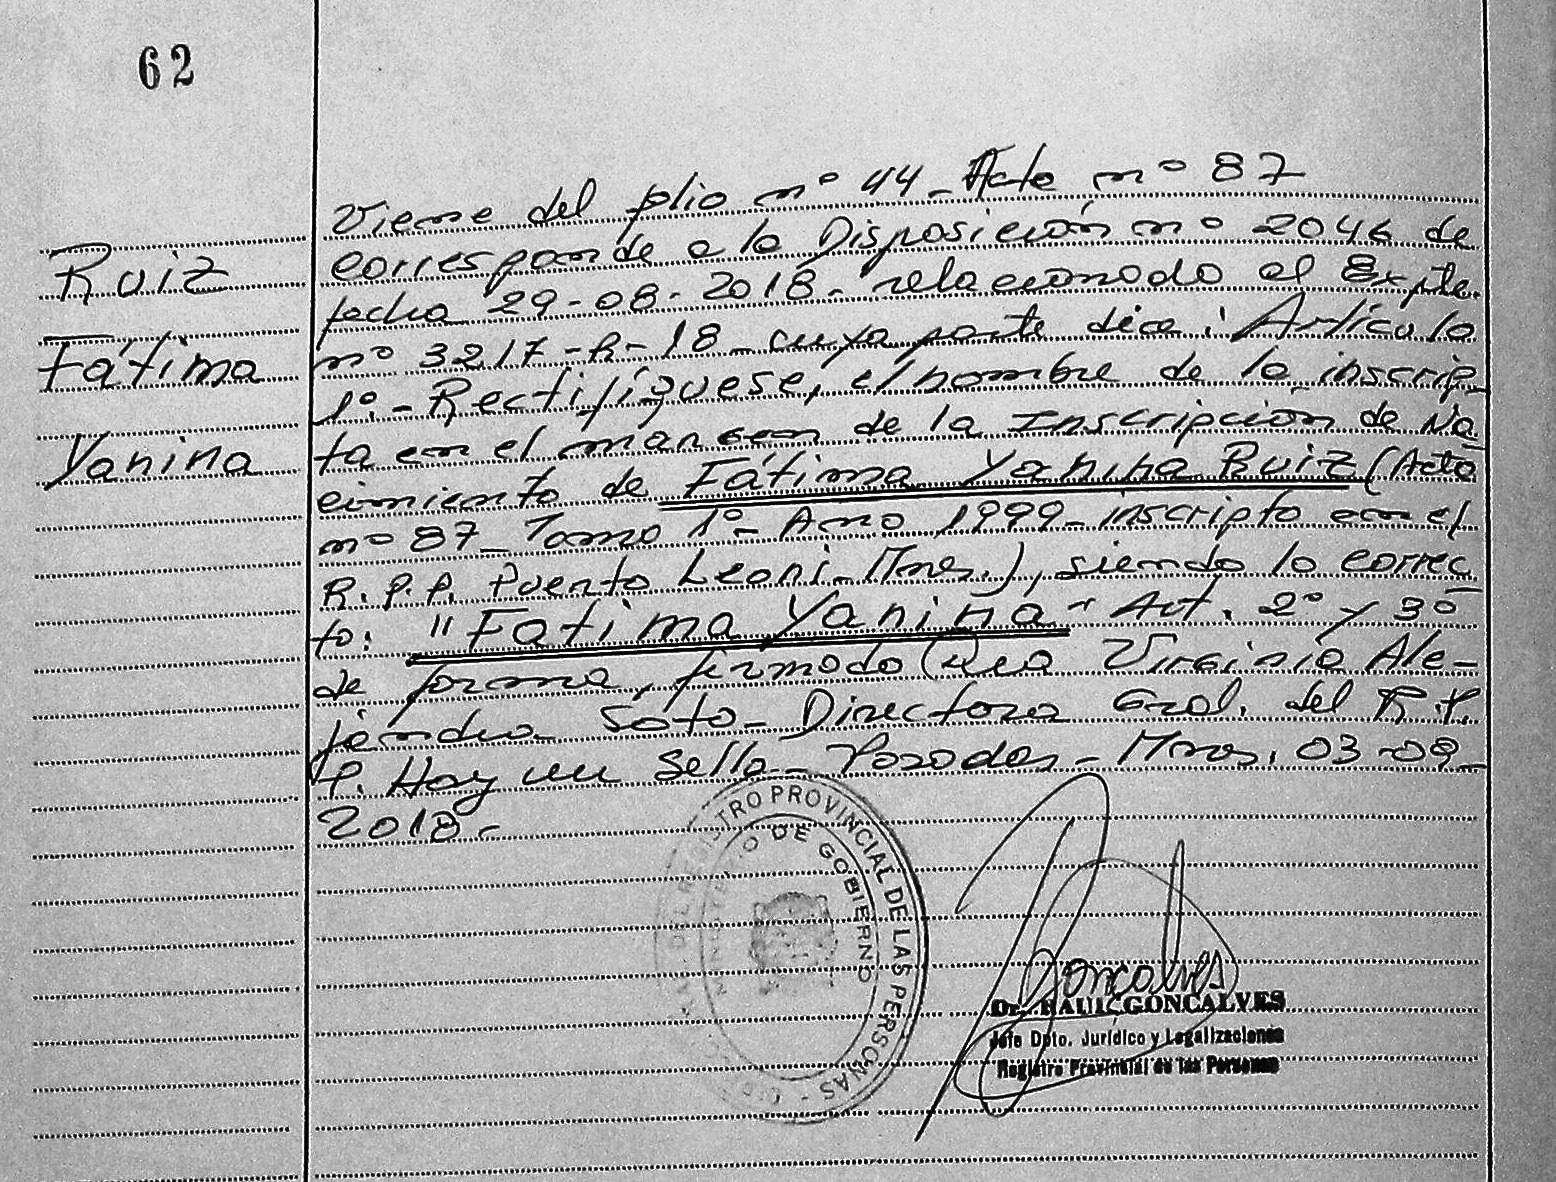 62
Ruiz
Fátima
Yanina
Viene del folio nº 44 - Acta nº 87
corresponde a la Disposición nº 2046 de
fecha 29-08-2018 - relacionado al Expte.
nº 3217-R-18 - cuya parte dice: Artículo
1º.- Rectifíquese, el nombre de la inscrip-
ta en el margen de la Inscripción de Na
cimiento de Fátima Yanina Ruiz (Acta
nº 87 - Tomo 1º - Año 1999 - inscripto en el
R.P.P. Puerto Leoni - Mnes.), siendo lo correc
to: "Fatima Yanina" Art. 2º y 3º
de forma, firmado Virginia Ale-
jandra Soto - Directora Gral. del R.P.
P. Hay un sello - Posadas - Mnes. 03-09-
2018 -
DEL REGISTRO PROVINCIAL DE LAS PERSONAS -
MINISTERIO DE GOBIERNO
Goncalves
Dr. RAUL GONCALVES
Jefe Dpto. Jurídico y Legalizaciones
Registro Provincial de las Personas